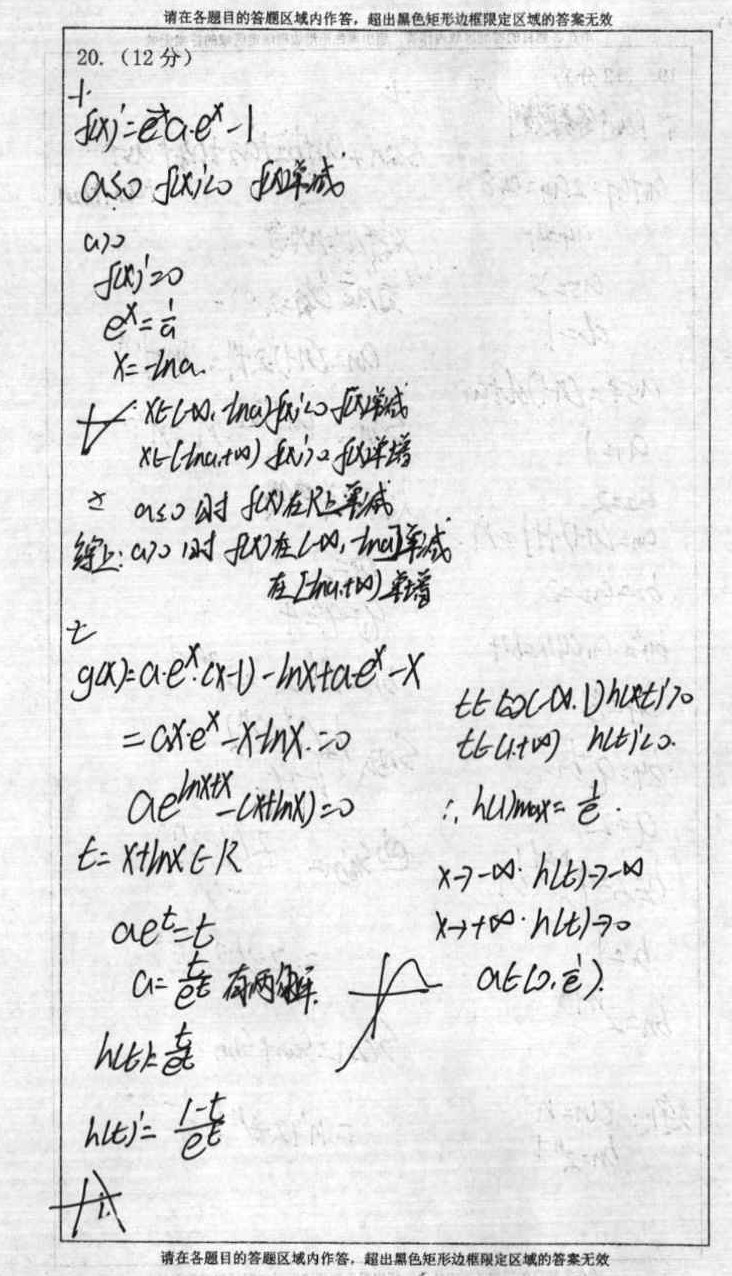 请在各题目的答题区域内作答，超出黑色矩形边框限定区域的答案无效
20.（12分）
f(x)'=a·e^x-1
a≤0 f(x)'<0 f(x)单减
a>0
f(x)'=0
e^x=1/a
x=-lna.
x∈(-∞,-lna) f(x)'<0 f(x)单减
x∈(-lna,+∞) f(x)'>0 f(x)单增
a≤0时 f(x)在R上单减
综上:a>0时 f(x)在(-∞,-lna]单减
在[-lna,+∞)单增
g(x)=a·e^x·(x-1)-lnx+a·e^x-x
=ax·e^x-x-lnx=0
ae^{lnx+x}-(x+lnx)=0
t=x+lnx∈R
ae^t=t
a=t/e^t 有两解.
h(t)=t/e^t
h(t)'=(1-t)/e^t
t∈(-∞,1) h(t)'>0
t∈(1,+∞) h(t)'<0.
∴h(1)max=1/e.
x→-∞. h(t)→-∞
x→+∞. h(t)→0
a∈(0,1/e).
请在各题目的答题区域内作答，超出黑色矩形边框限定区域的答案无效